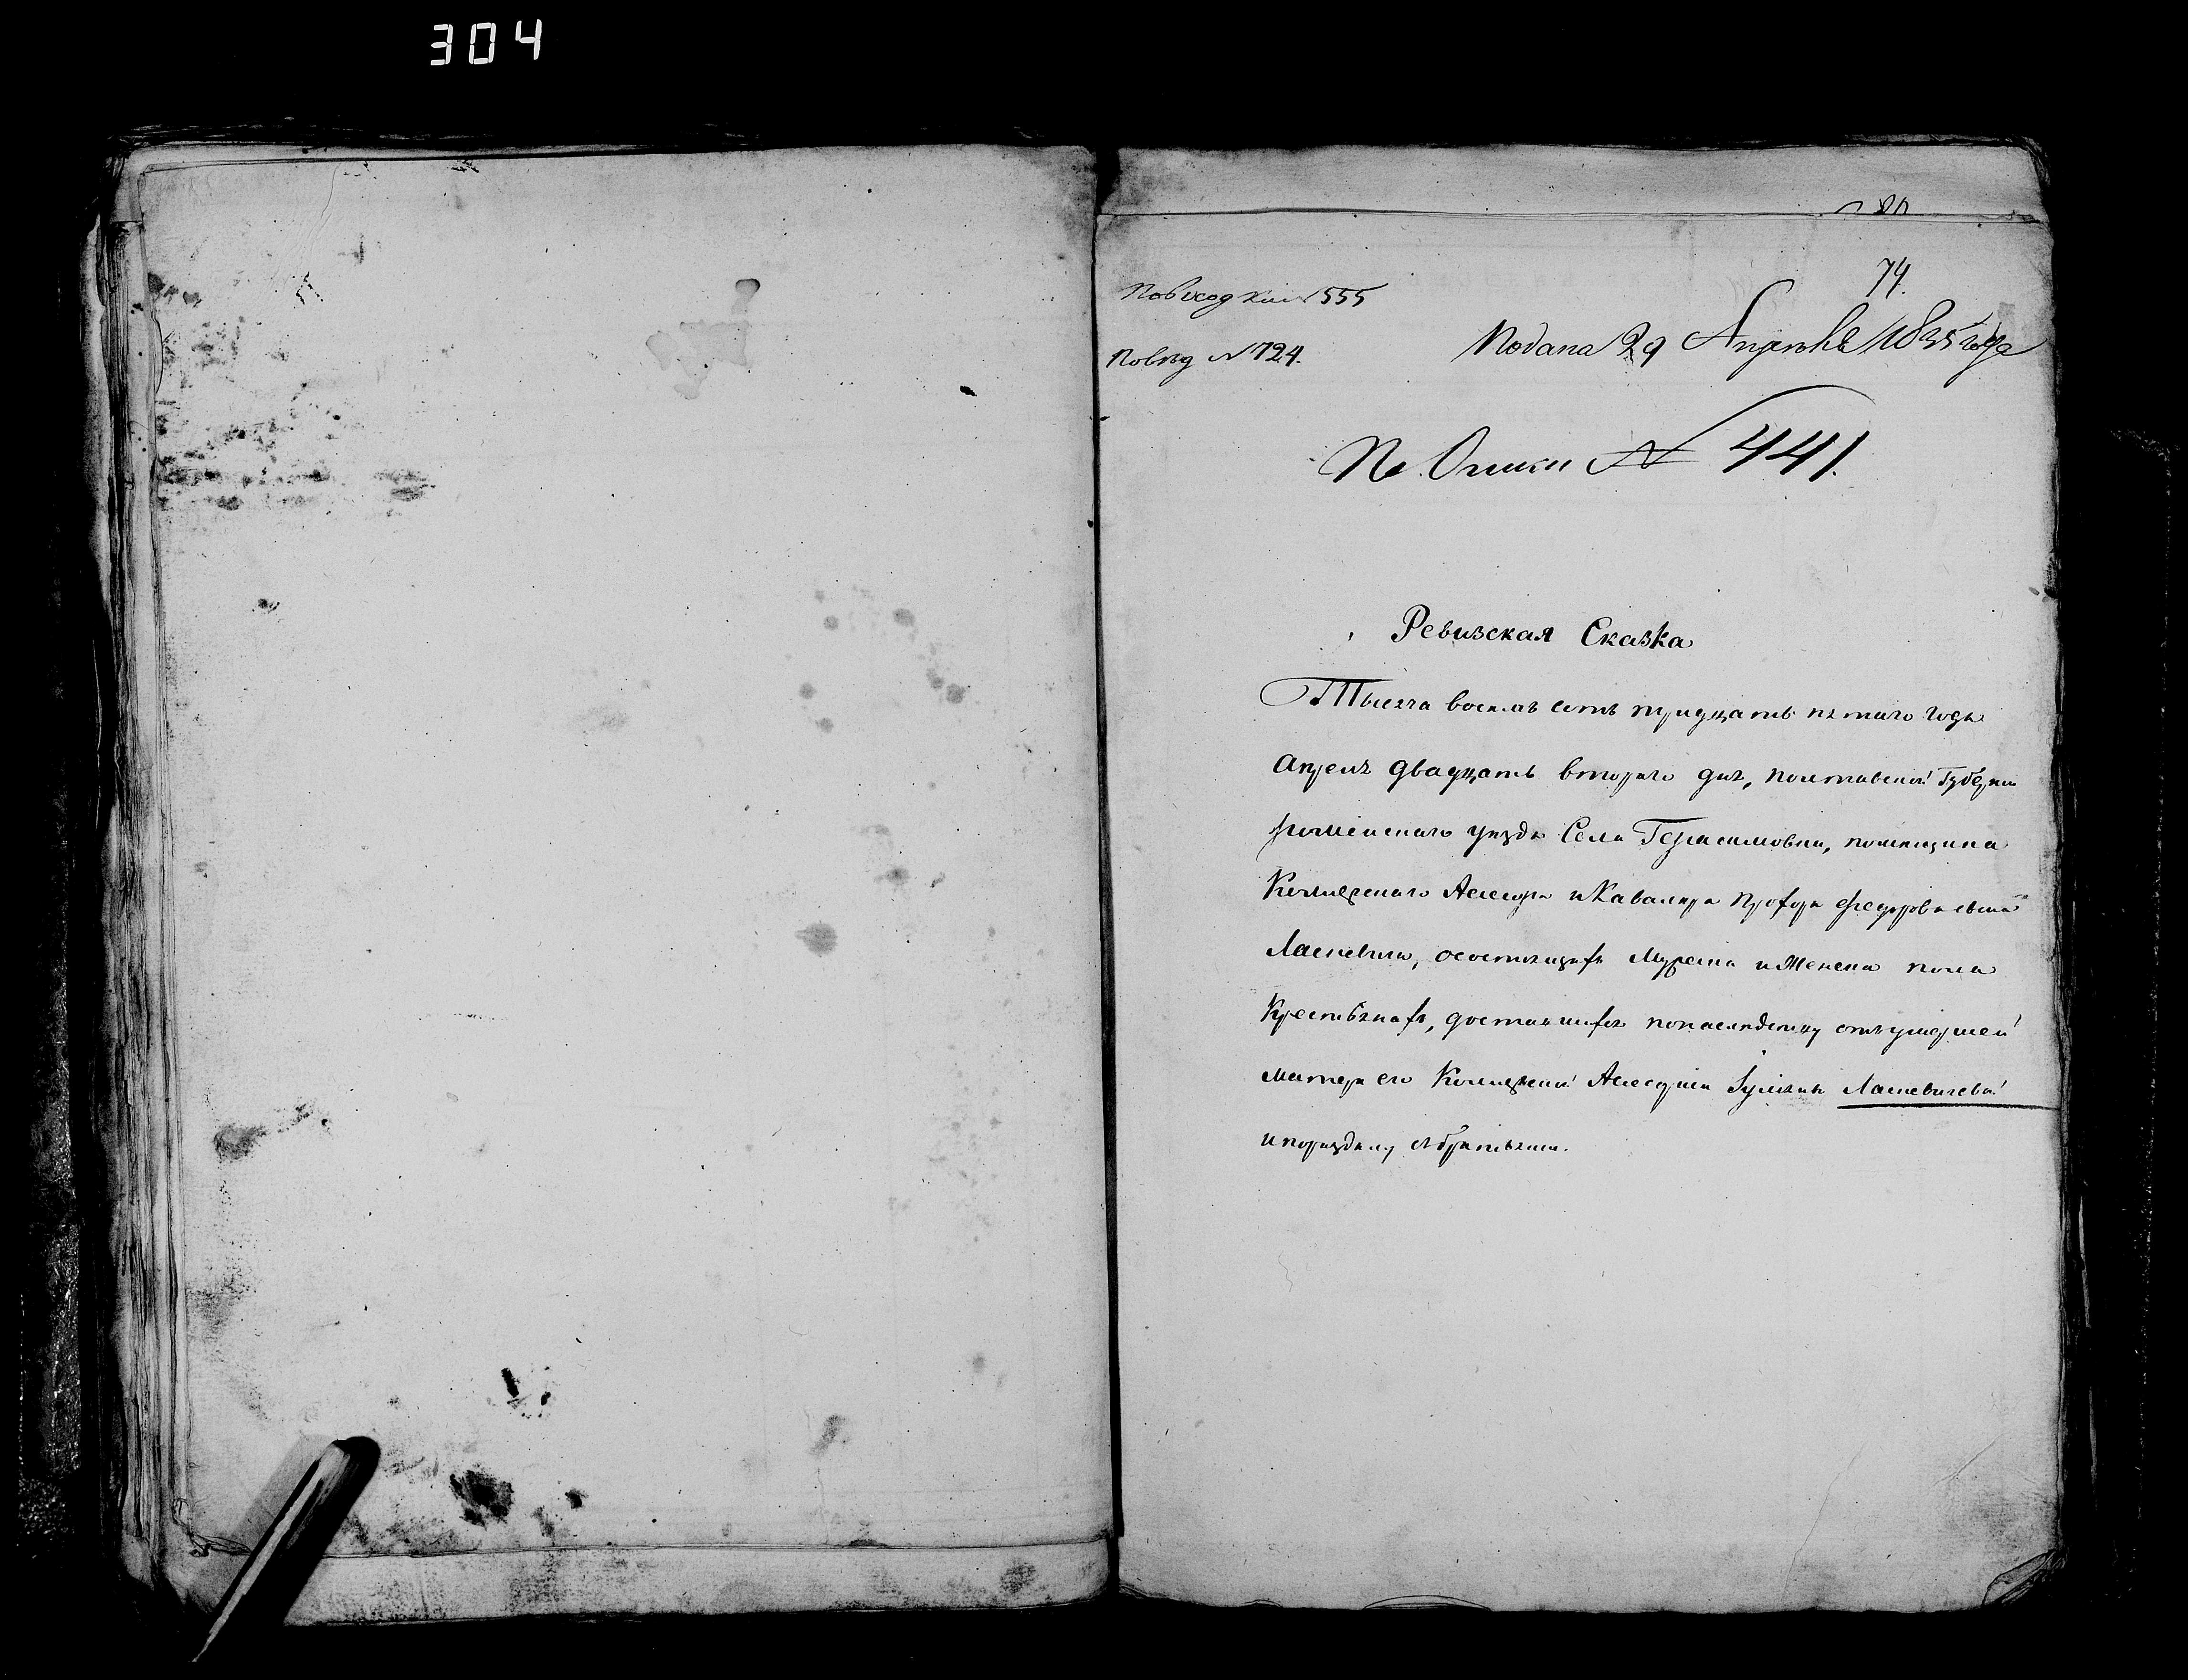 304
74.
По вход книг 555
Подана 29 Апреля 1835 года
По вед № 724.
По Описи № 441.
Ревизская Сказка
Тысяча восемь сотъ тридцать пятаго года
апреля двадцать втораго дня, полтавской Губернии
роменскаго уезда Села Герасимовки, помещика
Колежскаго Асесора и Кавалера Прохора Федорова сына
Ласкевича, о состоящихъ Мужеска и Женска пола
Крестьянахъ, доставшихся по наследству отъ умершей
матери его Колежской Асесорши Iулiяни Ласкевичевой
и по разделу с братьями.